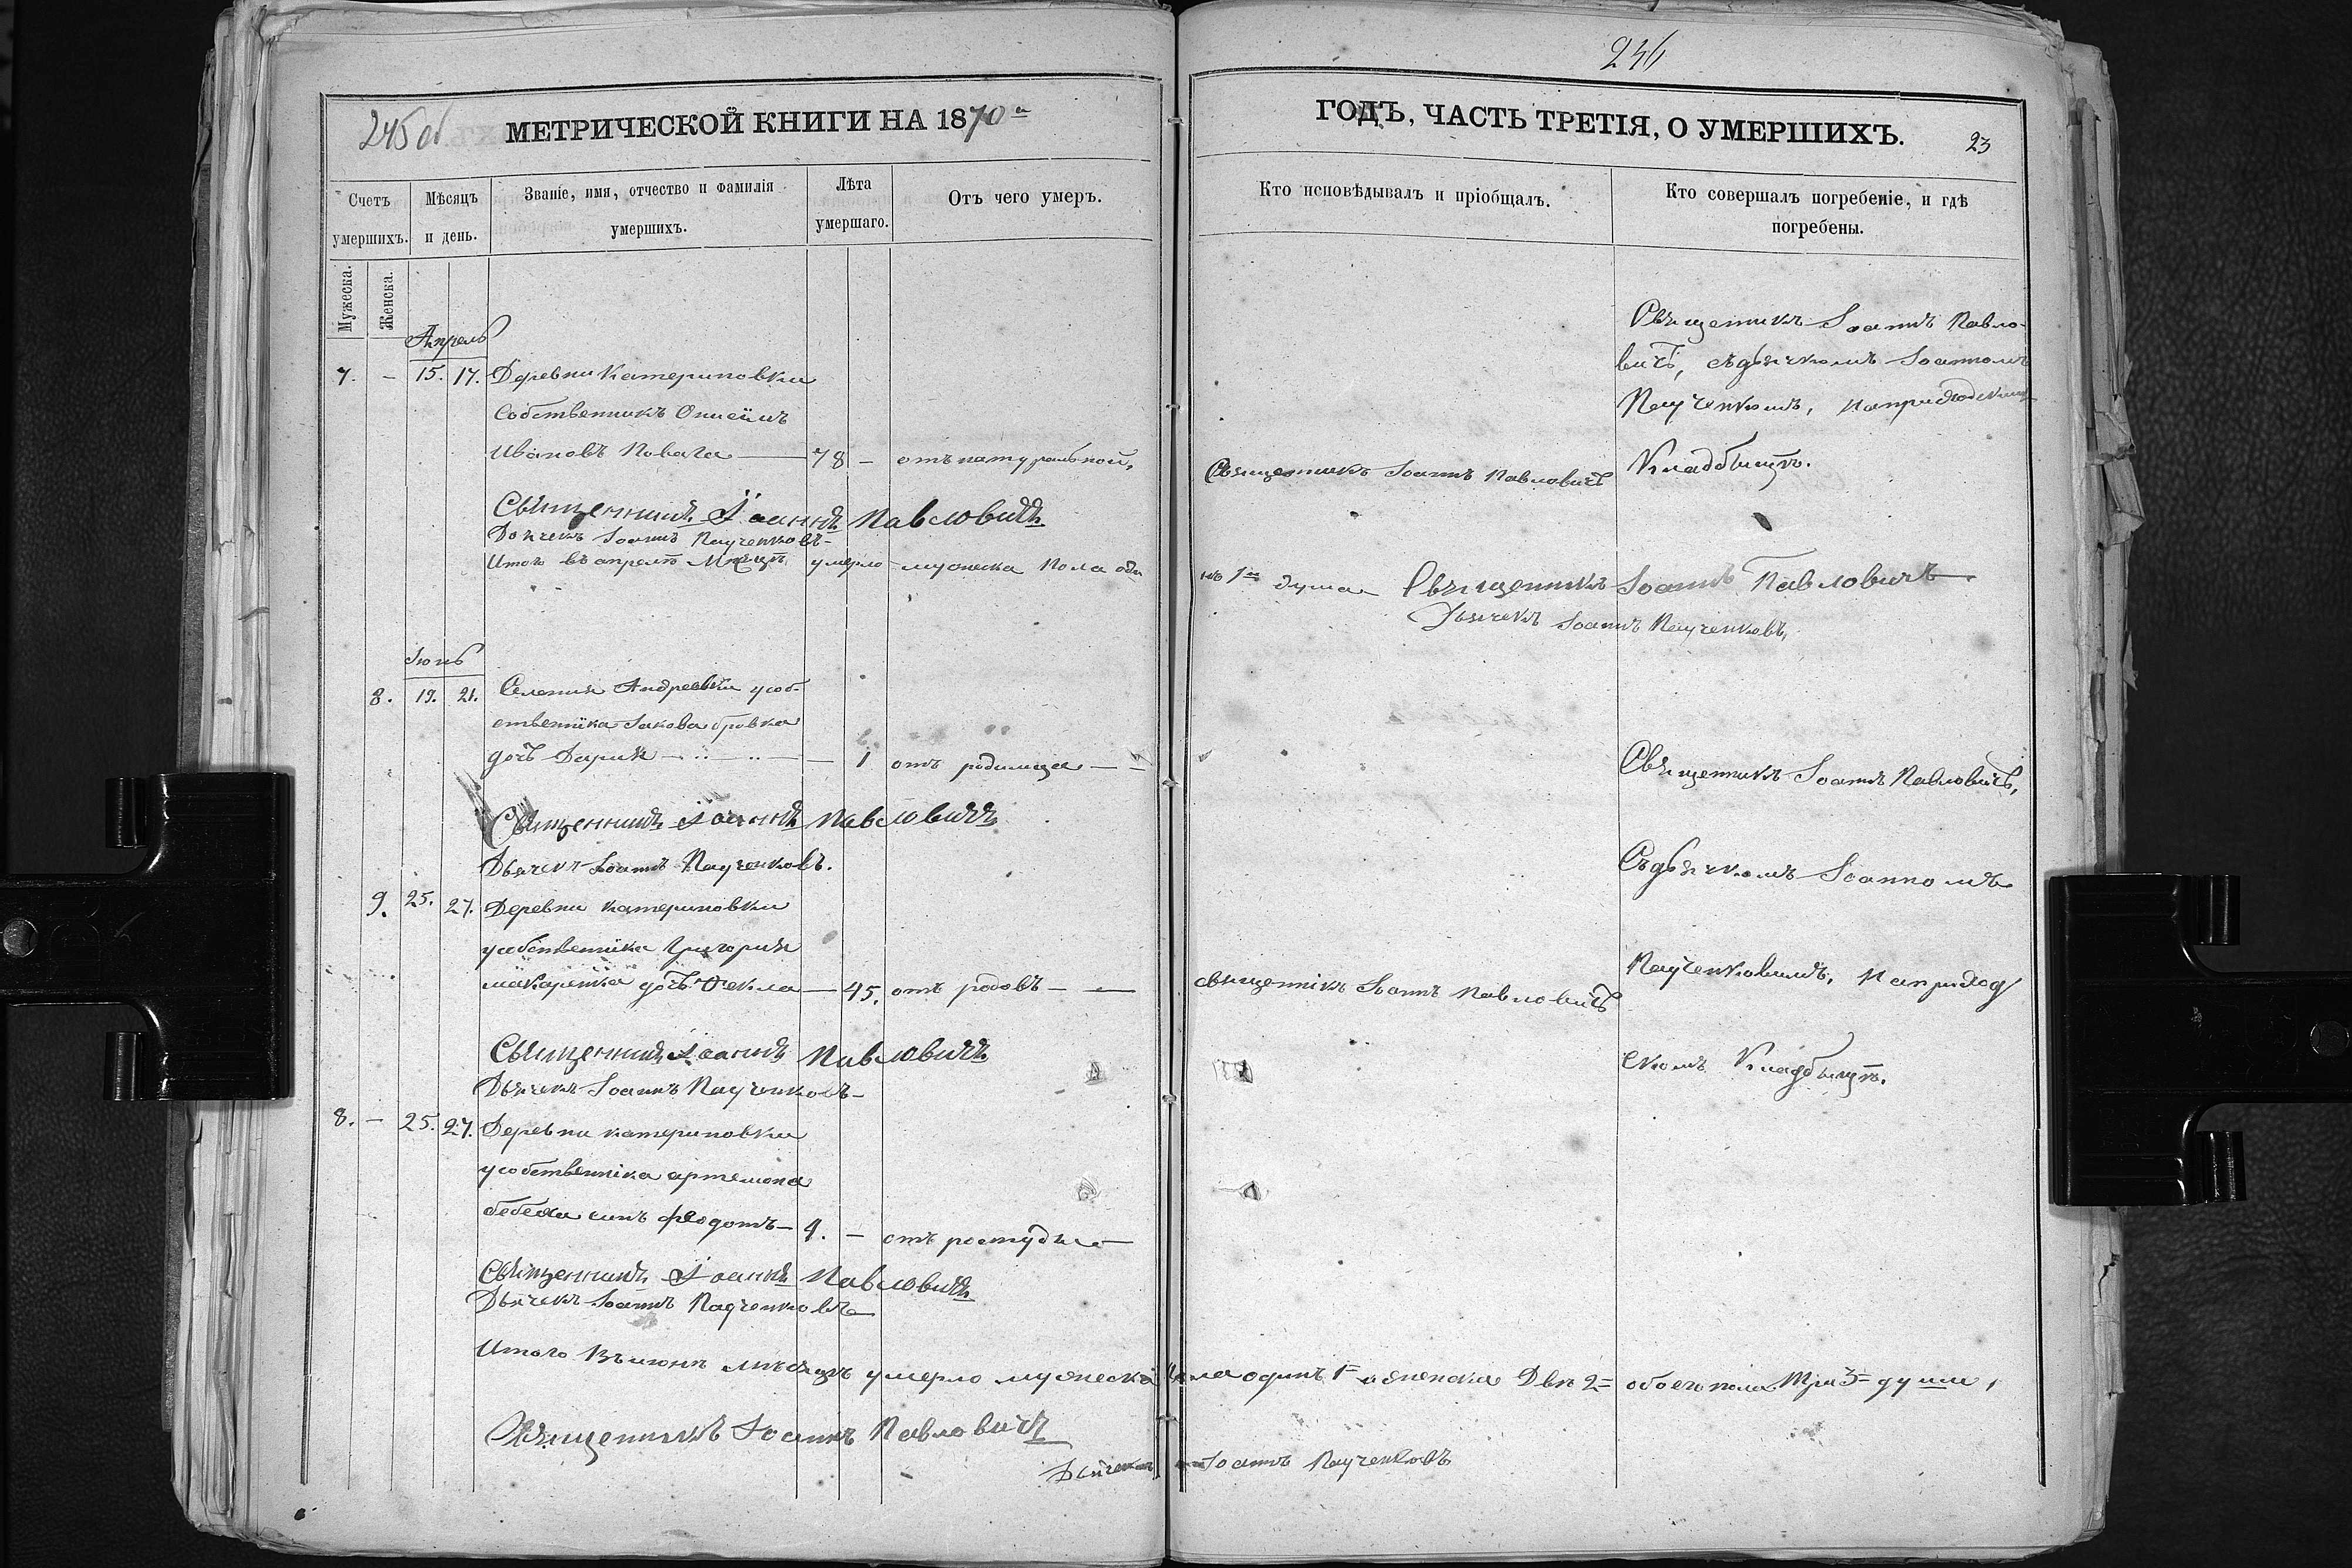 245 об
МЕТРИЧЕСКОЙ КНИГИ НА 1870й
Счетъ умершихъ.
Мужеска.
Женска.
Мѣсяцъ и день.
Званіе, имя, отчество и фамилія умершихъ.
Лѣта умершаго.
Отъ чего умеръ.
Апрель
7. – 15. 17. Деревни Катериновки
Собственникъ
Ивановъ Ковага — 78 – отъ натуральной,
Священникъ Іоаннъ Павловичъ
Дьячекъ Іоаннъ Паученковъ
Итого въ апрелѣ Мѣсяцѣ умерло мужеска пола оди
Іюнь
8. 19. 21. Селенія Андреевки у соб-
ственника Іакова бровка
дочь Дарія — — 1 отъ родимца —
Священникъ Іоаннъ Павловичъ
Дьячекъ Іоаннъ Паученковъ.
9. 25. 27. Деревни катериновки
у собственника Григорія
макаренка дочь Фекла — 45. отъ родовъ —
Священникъ Іоаннъ Павловичъ
Дьячекъ Іоаннъ Паученковъ
8. – 25. 27. Деревни катериновки
у собственніка артемона
сынъ феодотъ — – отъ
Священникъ Іоаннъ Павловичъ
Дьячекъ Іоаннъ Паученковъ
Итого въ июнѣ мѣсяцѣ умерло мужеска
Священникъ Іоаннъ Павловичъ
Дьячекъ
246
ГОДЪ, ЧАСТЬ ТРЕТІЯ, О УМЕРШИХЪ.
23
Кто исповѣдывалъ и пріобщалъ.
Кто совершалъ погребеніе, и гдѣ погребены.
Священникъ Іоаннъ Павло-
вичъ, съ дьячкомъ Іоанномъ
Паученкомъ, на приходскомъ
Священникъ Іоаннъ Павловичъ
Кладбищѣ.
нъ 1нъ душа Священникъ Іоаннъ Павловичъ
Дьячекъ Іоаннъ Паученковъ,
Священникъ Іоаннъ Павловичъ,
Съ дьячкомъ Іоанномъ
священнікъ Іоаннъ Павловичъ
Паученковымъ, На приход
скомъ Кладбищѣ.
пола одинъ 1= а женска Двѣ 2= обоего пола три 3= души,
Іоаннъ Паученковъ